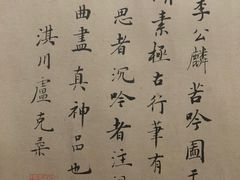 李公麟苦吟圖
素極古行筆有
思者沉吟者注
曲盡真神品也
淇川盧克柔